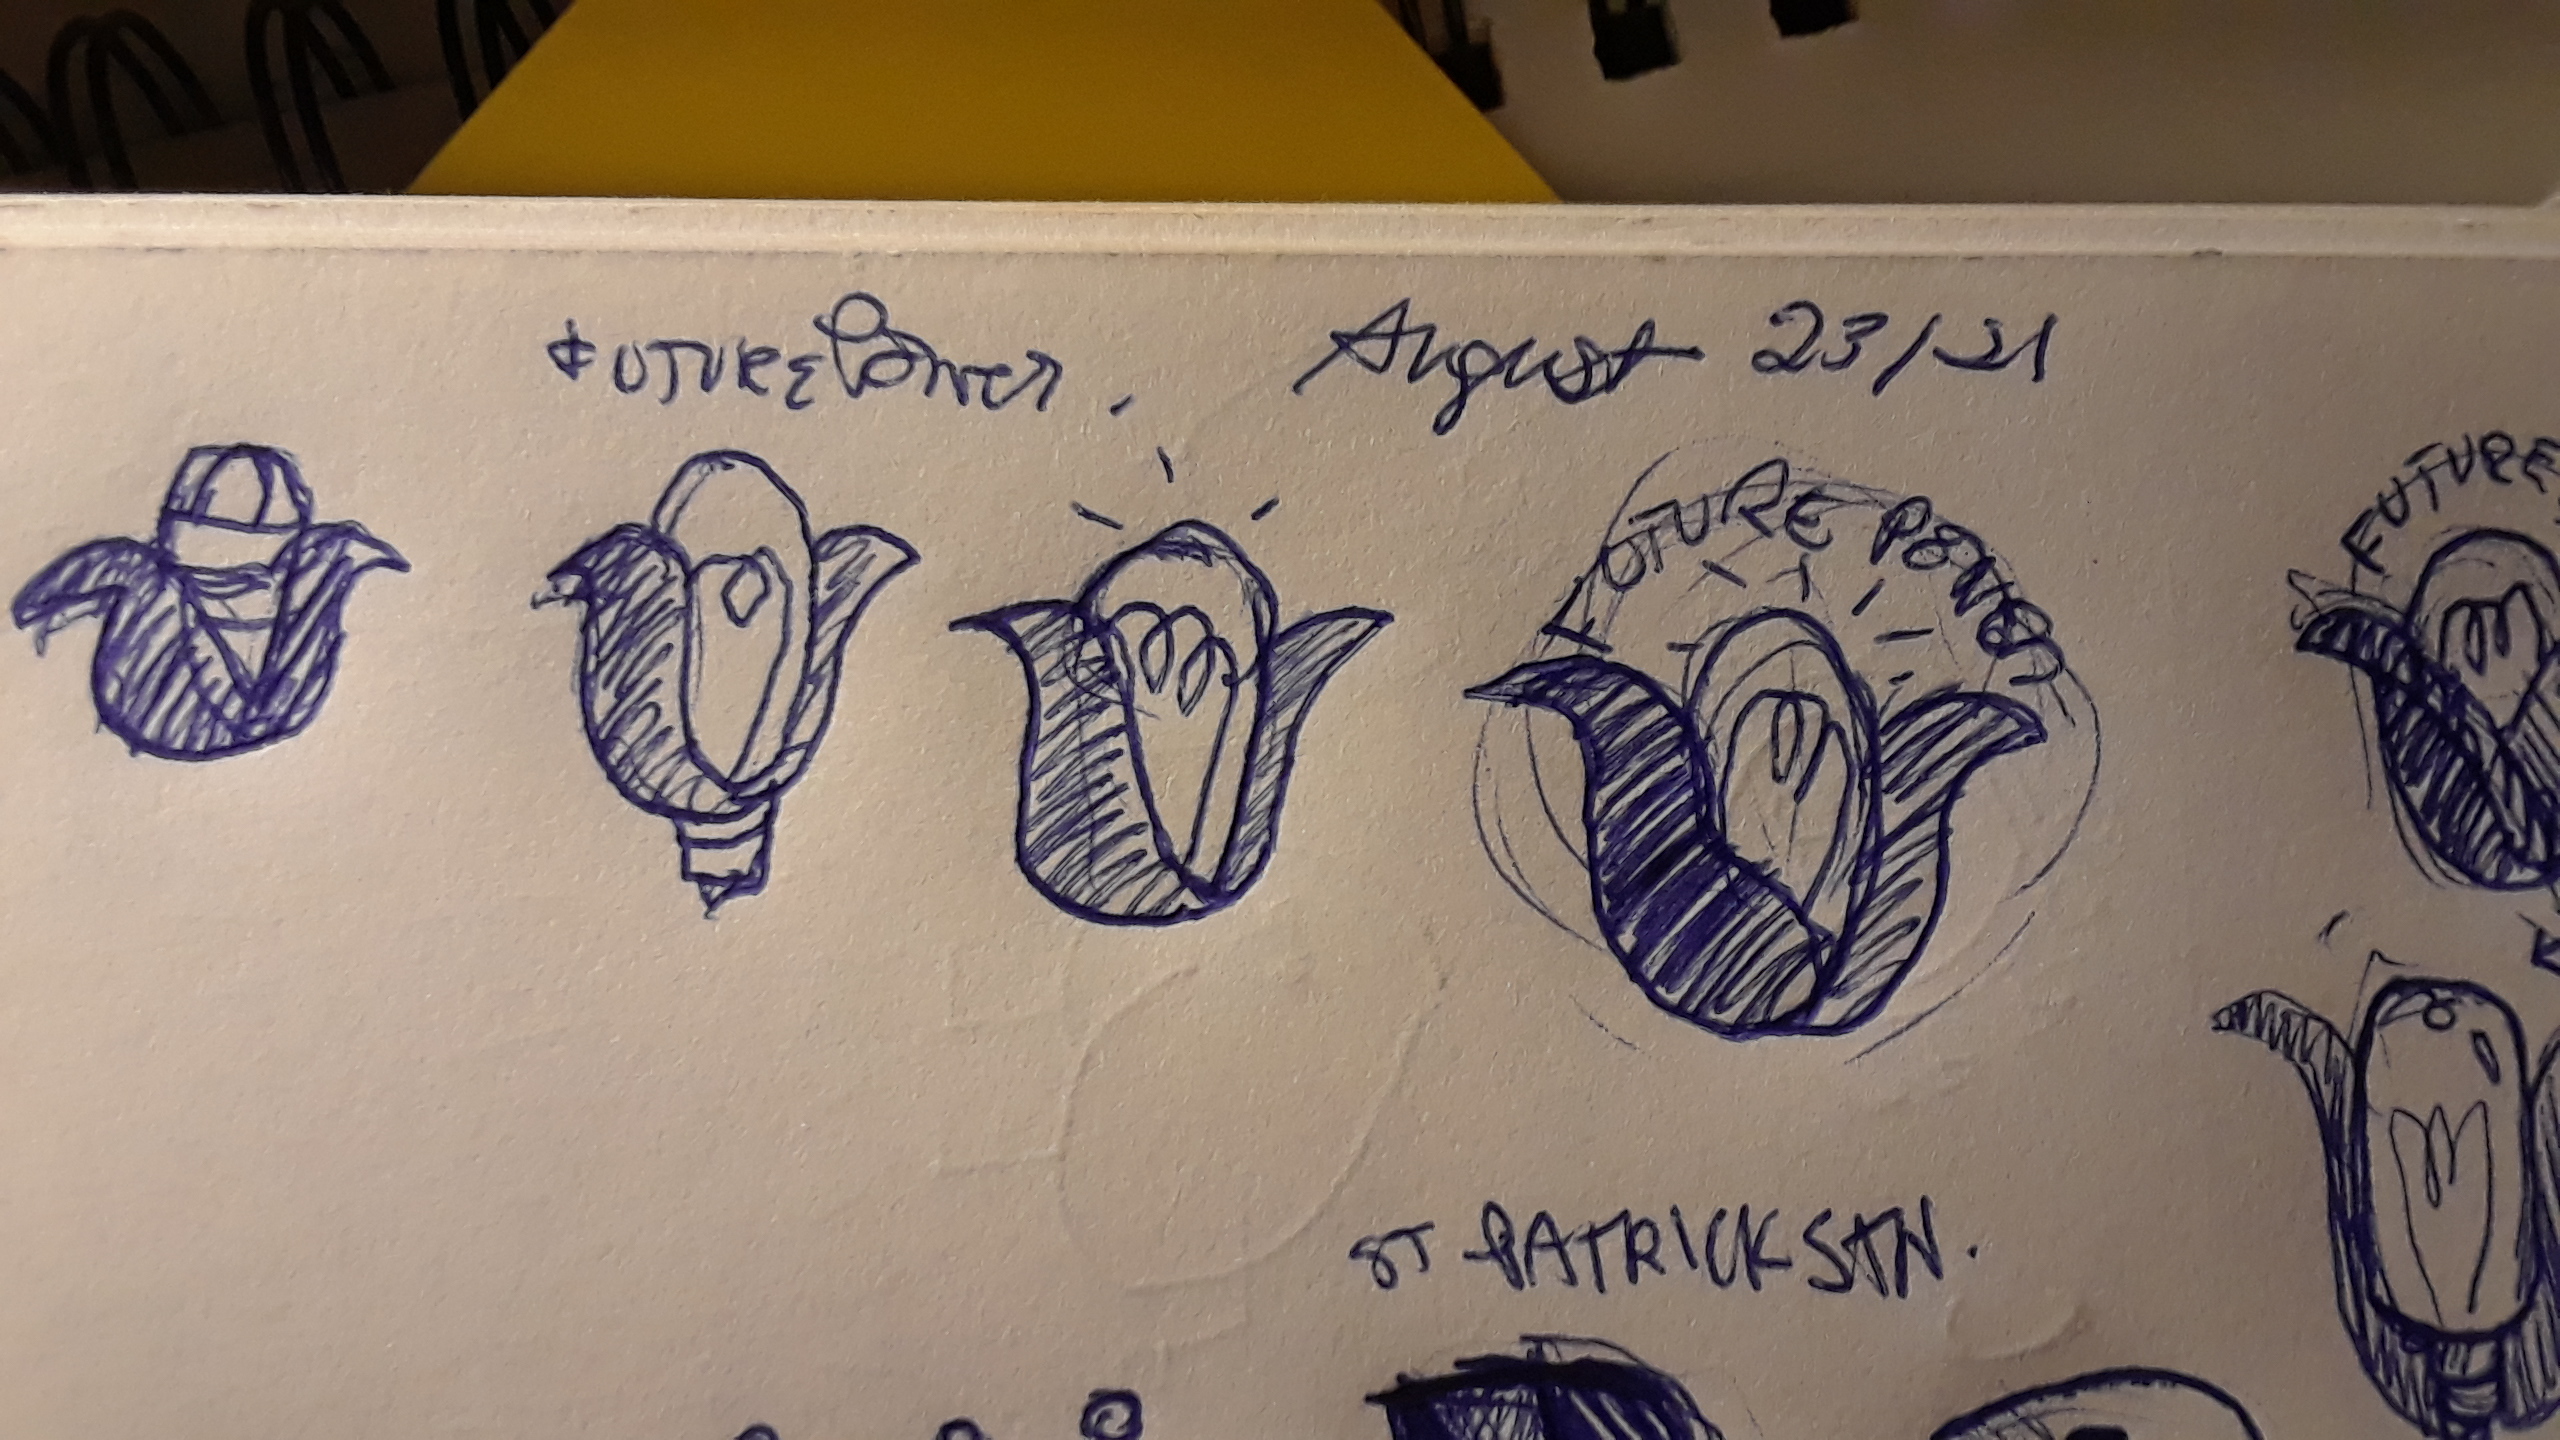 FUTUREPower. August 23/21
FUTURE POWER
FUTURE
ST PATRICK STN.